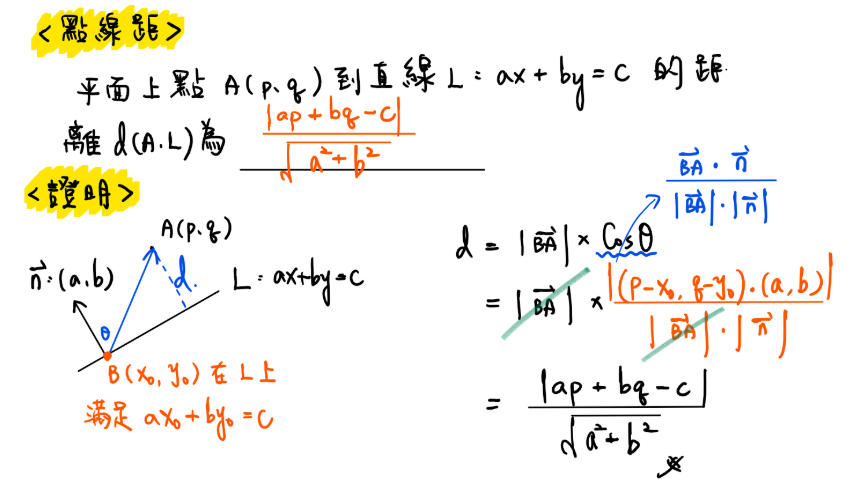 <點線距>
平面上點 A(p、q) 到直線 L：ax + by = c 的距
離 d(A.L) 為 |ap + bq - c| / √a²+b²
<證明>
A(p、q)
n⃗:(a.b)
d.
L：ax+by=c
θ
B(x₀, y₀) 在 L 上
滿足 ax₀+by₀=c
BA⃗ · n⃗ / |BA⃗|·|n⃗|
d = |BA⃗| × Cosθ
= |BA⃗| × |(p-x₀, q-y₀)·(a,b)| / |BA⃗|·|n⃗|
= |ap + bq - c| / √a²+b²